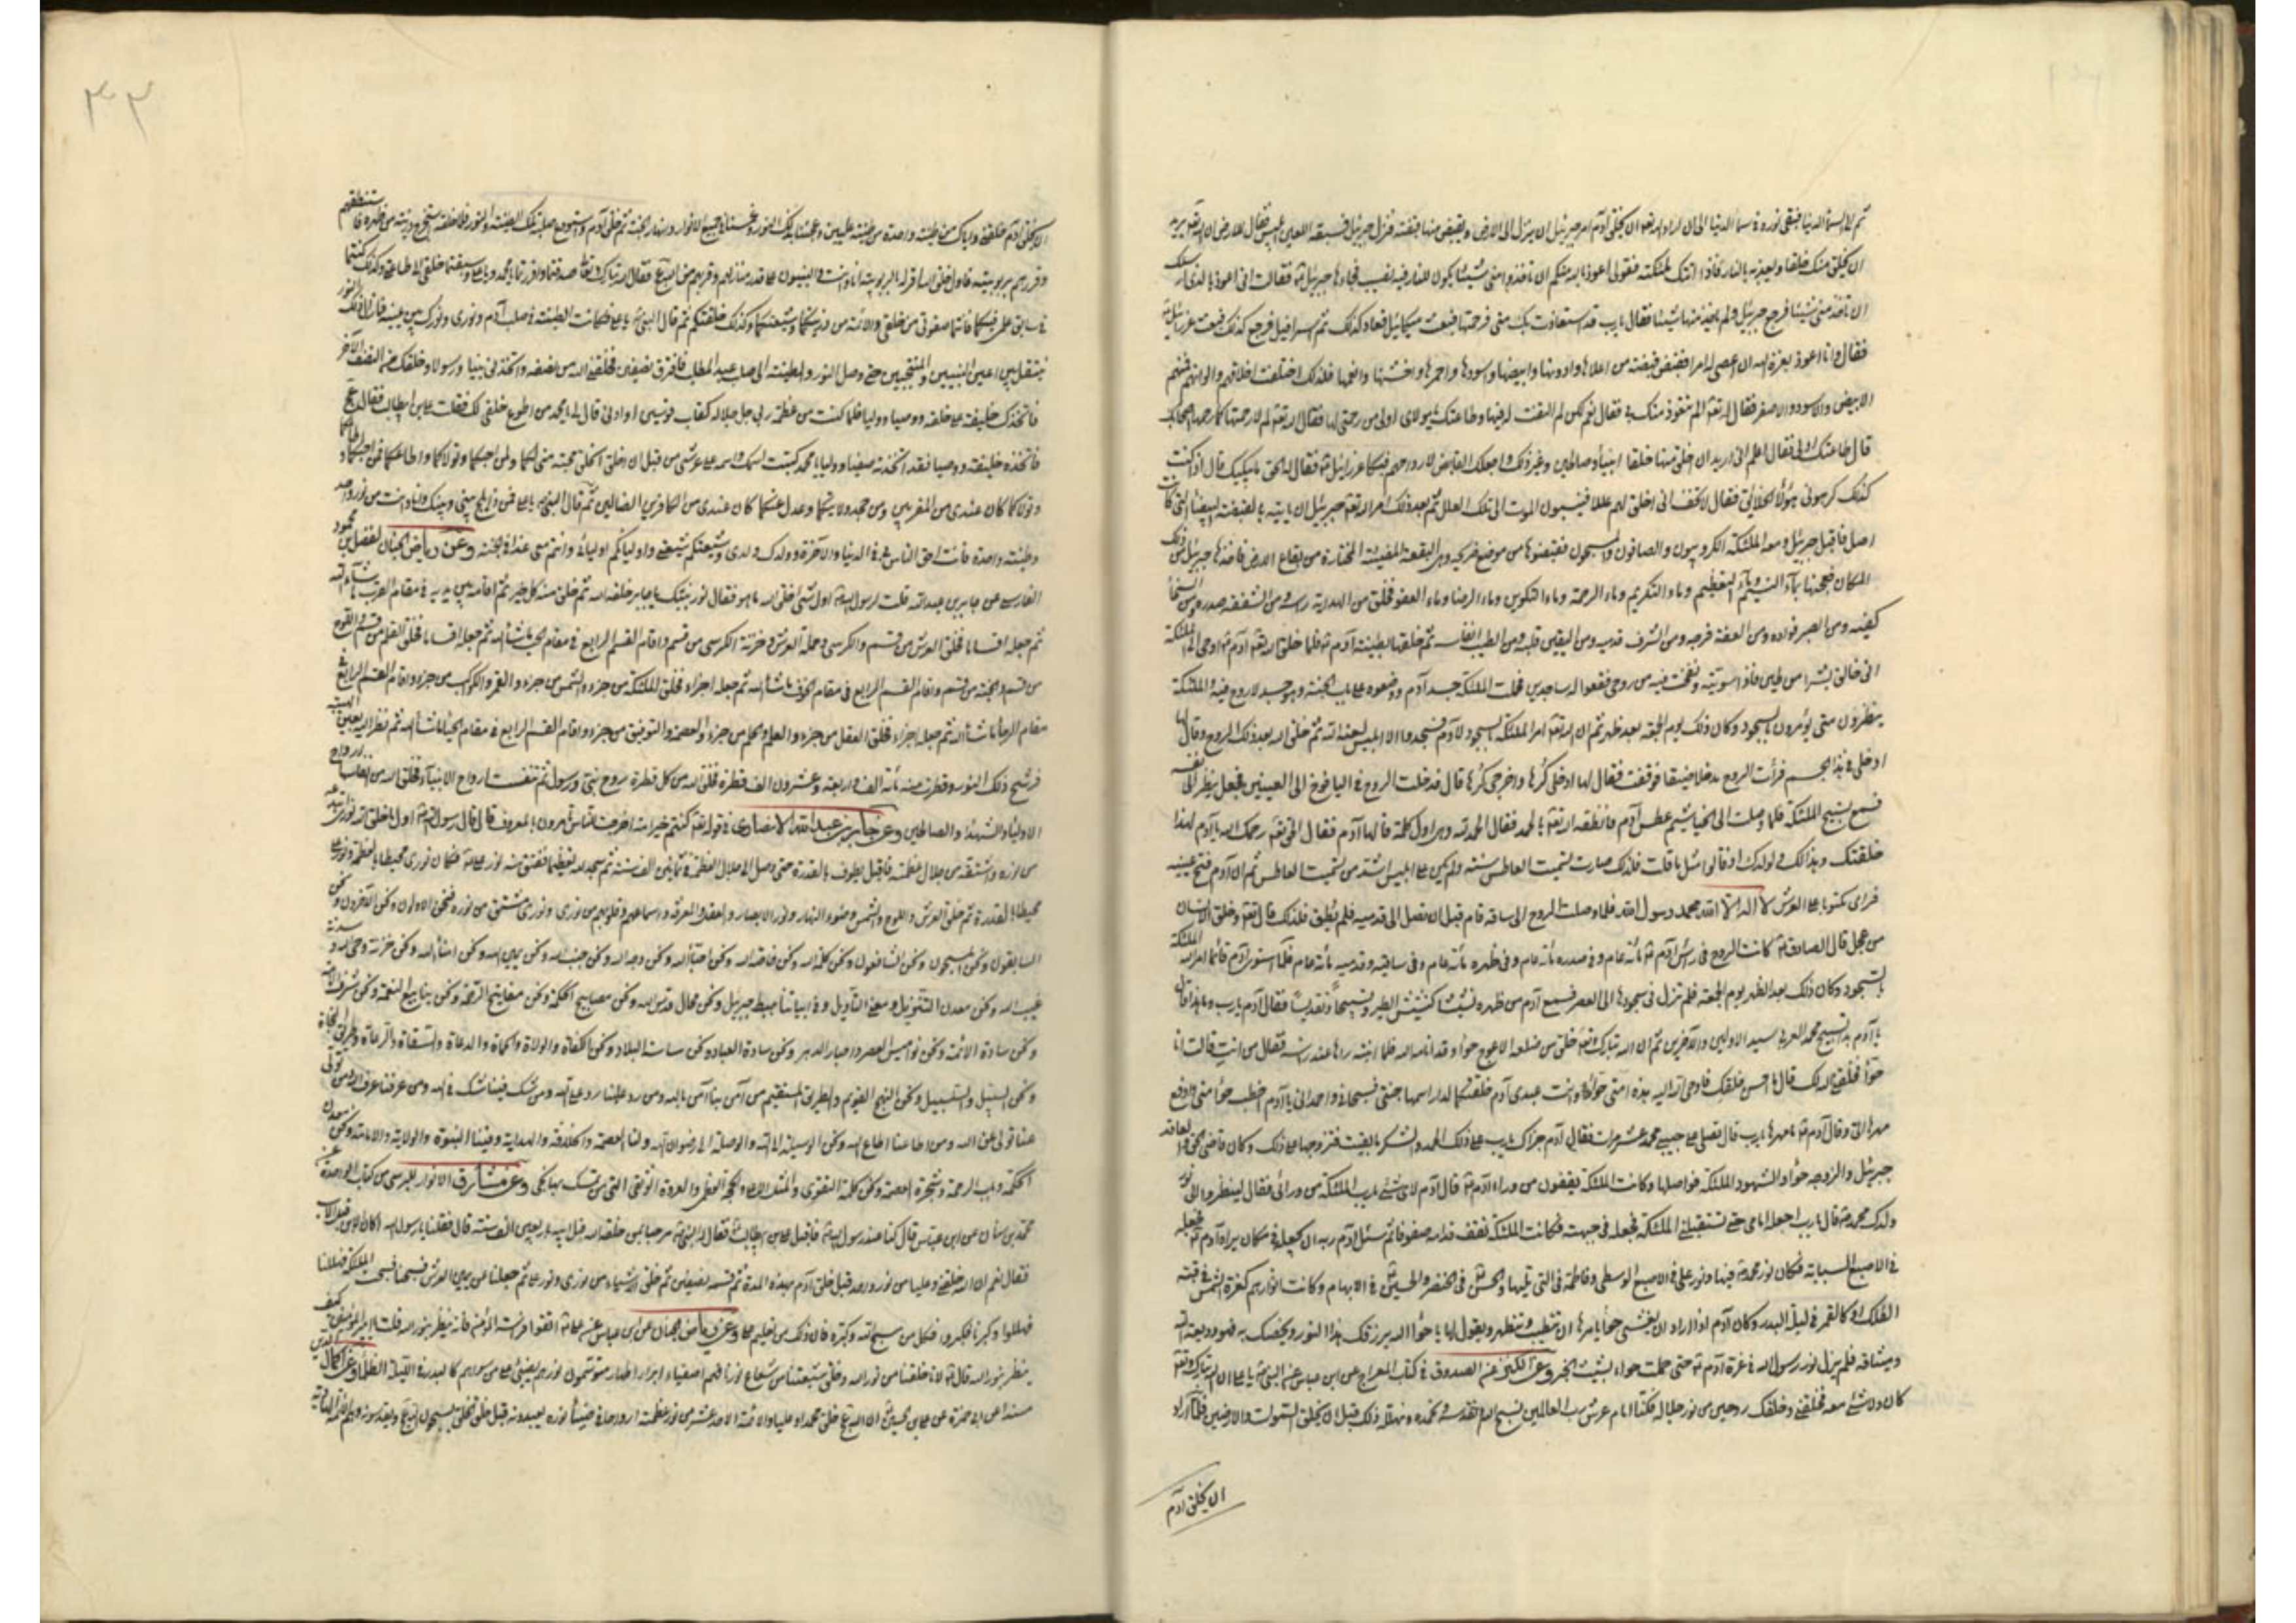 ثم الى السماء الدنيا فبقى نوره فى سماء الدنيا الى ان اراد الله تعالى ان يخلق آدم امر جبرئيل ان ينزل الى الارض ويقبض منها قبضة فنزل جبرئيل فسبقه اللعين ابليس فقال للارض ان الله يريد
ان يخلق منك خلقا ويعذبه بالنار فاذا اتتك ملائكته فقولى اعوذ بالله منكم ان تأخذوا منى شيئا يكون للنار فيه نصيب فجاءها جبرئيل فقالت انى اعوذ بالذى ارسلك
ان تأخذ منى شيئا فرجع جبرئيل ولم يأخذ منها شيئا فقال يارب قد استعاذت بك منى فرحمتها فبعث ميكائيل فعاد كذلك ثم اسرافيل فرجع كذلك فبعث عزرائيل
فقال وانا اعوذ بعزة الله ان اعصى له امرا فقبض قبضة من اعلاها وادونها وابيضها واسودها واحمرها واخشنها وانعمها فلذلك اختلفت اخلاقهم والوانهم فمنهم
الابيض والاسود والاصفر فقال له تعالى الم تتعوذ منك فقال نعم لكن لم التفت له فيها وطاعتك يا مولاى اولى من رحمتى لها فقال له الله تعالى لم لا رحمتها كما رحمها اصحابك
قال طاعتك اولى فقال اعلم انى اريد ان اخلق منها خلقا انبياء وصالحين وغير ذلك واجعلك القابض لارواحهم فبكا عزرائيل فقال له الحق ما يبكيك قال اذا كنت
كذلك كرهونى هؤلاء الخلائق فقال لا تخف انى اخلق لهم عللا فينسبون الموت الى تلك العلل ثم بعد ذلك امر الله تعالى جبرئيل ان ياتيه بالقبضة البيضاء التى كانت
اصل فاقبل جبرئيل ومعه الملائكة الكروبيون والصافون والمسبحون فقبضوها من موضع ضريحه وهى البقعة المضيئة المختارة من بقاع الارض فاخذها جبرئيل من ذلك
المكان فعجنها بماء التسنيم وماء التعظيم وماء التكريم وماء الرحمة وماء التكوين وماء الرضا وماء العفو فخلق من الهداية رأسه ومن الشفقة صدره ومن السخاء
كفيه ومن الصبر فؤاده ومن العفة فرجه ومن الشرف قدميه ومن اليقين قلبه ومن الطيب انفاسه ثم خلطها بطينة آدم فلما خلق الله تعالى آدم اوحى الى الملائكة
انى خالق بشرا من طين فاذا سويته ونفخت فيه من روحى فقعوا له ساجدين فحملت الملائكة جسد آدم ووضعوه على باب الجنة وهو جسد لا روح فيه والملائكة
ينتظرون متى يؤمرون بالسجود وكان ذلك يوم الجمعة بعد ظهر ثم ان الله تعالى امر الملائكة بالسجود لآدم فسجدوا الا ابليس لعنه الله ثم خلق الله بعد ذلك الروح وقال لها
ادخلى فى هذا الجسم فرأت الروح مدخلا ضيقا فوقفت فقال لها ادخلى كرها واخرجى كرها قال فدخلت الروح فى اليافوخ الى العينين فجعل ينظر الى نفسه
فسمع تسبيح الملائكة فلما وصلت الى الخياشيم عطس آدم فانطقه الله تعالى بالحمد فقال الحمد لله وهى اول كلمة قالها آدم فقال الحق تعالى رحمك الله يا آدم لهذا
خلقتك وهذا لك ولولدك ان قالوا مثل ما قلت فلذلك صارت تسميت العاطس سنة ولم يكن على ابليس اشد من تسميت العاطس ثم ان آدم فتح عينيه
فراى مكتوبا على العرش لا اله الا الله محمد رسول الله فلما وصلت الروح الى ساقه قام قبل ان تصل الى قدميه فلم يطق فلذلك قال تعالى وخلق الانسان
من عجل قال الصادق كانت الروح فى رأس آدم مائة عام وفى صدره مائة عام وفى ظهره مائة عام وفى ساقيه وقدميه مائة عام فلما استوى آدم قائما امر الله الملائكة
بالسجود وكان ذلك بعد الظهر يوم الجمعة فلم تزل فى سجودها الى العصر فسمع آدم من ظهره نشيشا كنشيش الطير وتسبيحا وتقديسا فقال آدم يارب وما هذا قال
يا آدم هذا تسبيح محمد العربى سيد الاولين والآخرين ثم ان الله تبارك وتعالى خلق من ضلعه الاعوج حوا وقد انامه الله فلما انتبه رآها عند راسه فقال من انت قالت انا
حوا خلقنى الله لك قال ما احسن خلقك فاوحى الله اليه هذه امتى حوا وانت عبدى آدم خلقتكما لدار اسمها جنتى فسبحانى واحمدانى يا آدم اخطب حوا منى وادفع
مهرها الى وقال آدم ما مهرها يارب قال تصلى على حبيبى محمد عشر مرات فقال آدم جزاك يارب على ذلك الحمد والشكر ما بقيت فتزوجها على ذلك وكان قاضى الحق والعاقد
جبرئيل والزوجة حوا والشهود الملائكة فواصلها وكانت الملائكة يقفون من وراء آدم قال آدم لاى شئ يارب الملائكة من ورائى فقال لينظروا الى نور
ولدك محمد قال يارب اجعله امامى حتى تستقبلنى الملائكة فجعله فى جبهته فكانت الملائكة تقف قدامه صفوفا ثم سئل آدم ربه ان يجعله فى مكان يراه آدم فجعله
فى الاصبع السبابة فكان نور محمد فيها ونور على فى الاصبع الوسطى وفاطمة فى التى تليها والحسن فى الخنصر والحسين فى الابهام وكانت انوارهم كغرة الشمس فى قبة
الفلك او كالقمر فى ليلة البدر وكان آدم اذا اراد ان يغشى حوا يامرها ان تتطيب وتتطهر ويقول لها يا حوا الله يرزقك هذا النور ويخصك به فهو وديعة الله
وميثاقه فلم يزل نور رسول الله فى غرة آدم حتى حملت حواء بشيث الخبر وعن الكنز عن الصدوق فى كتاب المعراج عن ابن عباس عن النبى يا على ان الله تبارك وتعالى
كان ولا شئ معه فخلقنى وخلقك روحين من نور جلاله فكنا امام عرش رب العالمين نسبح الله ونقدسه ونحمده ونهلله وذلك قبل ان يخلق السموات والارضين فلما اراد
ان يخلق آدم
٣٣
ان يخلق آدم خلقنى واياك من طينة واحدة من طينة عليين وعجننا بذلك النور وغمسنا فى جميع الانوار وانهار الجنة ثم خلق آدم واستودع صلبه تلك الطينة والنور فلما خلقه استخرج ذريته من ظهره فاستنطقهم
وقررهم بربوبيته فاول خلق الله اقر له بالربوبية انا وانت والنبيون على قدر منازلهم وقربهم من الله فقال الله تبارك وتعالى صدقتما واقررتما يا محمد ويا على وسبقتما خلقى الى طاعتى وكذلك كنتما
فى سابق علمى فيكما فانتما صفوتى من خلقى والائمة من ذريتكما وشيعتكما وكذلك خلقتكم ثم قال النبى يا على فكانت الطينة فى صلب آدم ونورى ونورك بين عينيه فما زال ذلك النور
ينتقل بين اعين النبيين والمنتجبين حتى وصل النور والطينة الى صلب عبد المطلب فافترق نصفين فخلقنى الله من نصفه واتخذنى نبيا ورسولا وخلقك من النصف الآخر
فاتخذك خليفة على خلقه ووصيا ووليا فلما كنت من عظمة ربى جل جلاله كقاب قوسين او ادنى قال لى يا محمد من اطوع خلقى لك فقلت على بن ابيطالب فقال
فاتخذه خليفة ووصيا فقد اتخذته صفيا ووليا يا محمد كتبت اسمك واسمه على عرشى من قبل ان اخلق الخلق محبة منى لكما ولمن احبكما وتولاكما واطاعكما فمن احبكما واطاعكما
وتولاكما كان عندى من المقربين ومن جحد ولايتكما وعدل عنكما كان عندى من الكافرين الضالين ثم قال النبى يا على فمن ذا يلج بينى وبينك وانا وانت من نور واحد
وطينة واحدة فانت احق الناس بى فى الدنيا والآخرة وولدك ولدى وشيعتكم شيعتى واولياؤكم اوليائى وانتم معى غدا فى الجنة وعن رياض الجنان لفضل بن محمود
الفارسى عن جابر بن عبدالله قلت لرسول الله اول شئ خلق الله ما هو فقال نور نبيك يا جابر خلقه الله ثم خلق منه كل خير ثم اقامه بين يديه فى مقام القرب ما شاء الله
ثم جعله اقساما فخلق العرش من قسم والكرسى من قسم وحملة العرش وخزنة الكرسى من قسم واقام القسم الرابع فى مقام الحب ما شاء الله ثم جعله اقساما فخلق القلم من قسم واللوح
من قسم والجنة من قسم واقام القسم الرابع فى مقام الخوف ما شاء الله ثم جعله اجزاء فخلق الملائكة من جزء والشمس من جزء والقمر والكواكب من جزء واقام القسم الرابع فى
مقام الرجاء ما شاء الله ثم جعله اجزاء فخلق العقل من جزء والعلم والحلم من جزء والعصمة والتوفيق من جزء واقام القسم الرابع فى مقام الحياء ما شاء الله ثم نظر اليه بعين الهيبة
فرشح ذلك النور وقطرت منه مائة الف واربعة وعشرون الف قطرة فخلق الله من كل قطرة روح نبى ورسول ثم تنفست ارواح الانبياء فخلق الله من انفاسها ارواح
الاولياء والشهداء والصالحين وعن جابر بن عبد الله الانصارى فى قوله تعالى كنتم خير امة اخرجت للناس تأمرون بالمعروف قال قال رسول الله اول ما خلق الله نورى ابتدعه
من نوره واشتقه من جلال عظمته فاقبل يطوف بالقدرة حتى وصل الى جلال العظمة فى ثمانين الف سنة ثم سجد لله تعظيما ففتق منه نور على فكان نورى محيطا بالعظمة ونور على
محيطا بالقدرة ثم خلق العرش واللوح والشمس وضوء النهار ونور الابصار والعقل والمعرفة واسماعهم وقلوبهم من نورى ونورى مشتق من نوره فنحن الاولون ونحن الآخرون ونحن
السابقون ونحن المسبحون ونحن الشافعون ونحن كلمة الله ونحن خاصة الله ونحن احباء الله ونحن وجه الله ونحن جنب الله ونحن يمين الله ونحن امناء الله ونحن خزنة وحى الله وسدنة
غيب الله ونحن معدن التنزيل ومعنى التأويل وفى ابياتنا هبط جبرئيل ونحن محال قدس الله ونحن مصابيح الحكمة ونحن مفاتيح الرحمة ونحن ينابيع النعمة ونحن شرف الامة
ونحن سادة الائمة ونحن نواميس العصر واحبار الدهر ونحن سادة العباد ونحن ساسة البلاد ونحن الكفاة والولاة والحماة والدعاة والسقاة والرعاة وطريق النجاة
ونحن السبيل والسلسبيل ونحن النهج القويم والطريق المستقيم من آمن بنا آمن بالله ومن رد علينا رد على الله ومن شك فينا شك فى الله ومن عرفنا عرف الله ومن تولى
عنا تولى عن الله ومن اطاعنا اطاع الله ونحن الوسيلة الى الله والوصلة الى رضوان الله ولنا العصمة والخلافة والهداية وفينا النبوة والولاية والامامة ونحن معدن
الحكمة وباب الرحمة وشجرة العصمة ونحن كلمة التقوى والمثل الاعلى والحجة العظمى والعروة الوثقى التى من تمسك بها نجى وعن مشارق الانوار للبرسى من كتاب الواحدة عن
محمد بن سنان عن ابن عباس قال كنا عند رسول الله فاقبل على بن ابيطالب فقال له النبى مرحبا بمن خلقه الله قبل ابيه باربعين الف سنة قال فقلنا يا رسول الله اكان الابن قبل الاب
فقال نعم ان الله خلقنى وعليا من نور واحد قبل خلق آدم بهذه المدة ثم قسمه نصفين ثم خلق الاشياء من نورى ونور على ثم جعلنا عن يمين العرش فسبحنا فسبحت الملائكة فهللنا
فهللوا وكبرنا فكبروا فكل من سبح الله وكبره فان ذلك من تعليم على وعن رياض الجنان عن ابن عباس عن على اتقوا فراسة المؤمن فانه ينظر بنور الله قلت يا امير المؤمنين كيف
ينظر بنور الله قال لانا خلقنا من نور الله وخلق شيعتنا من شعاع نورنا فهم اصفياء ابرار اطهار متوسمون نورهم يضئ على من سواهم كالبدر فى الليلة الظلماء وعن اكمال الدين
مسندا عن ابى حمزة عن على بن الحسين ان الله تعالى خلق محمدا وعليا والائمة الاحد عشر من نور عظمته ارواحا فى ضياء نوره يعبدونه قبل خلق الخلق يسبحون الله ويقدسونه وهم الائمة الهادية